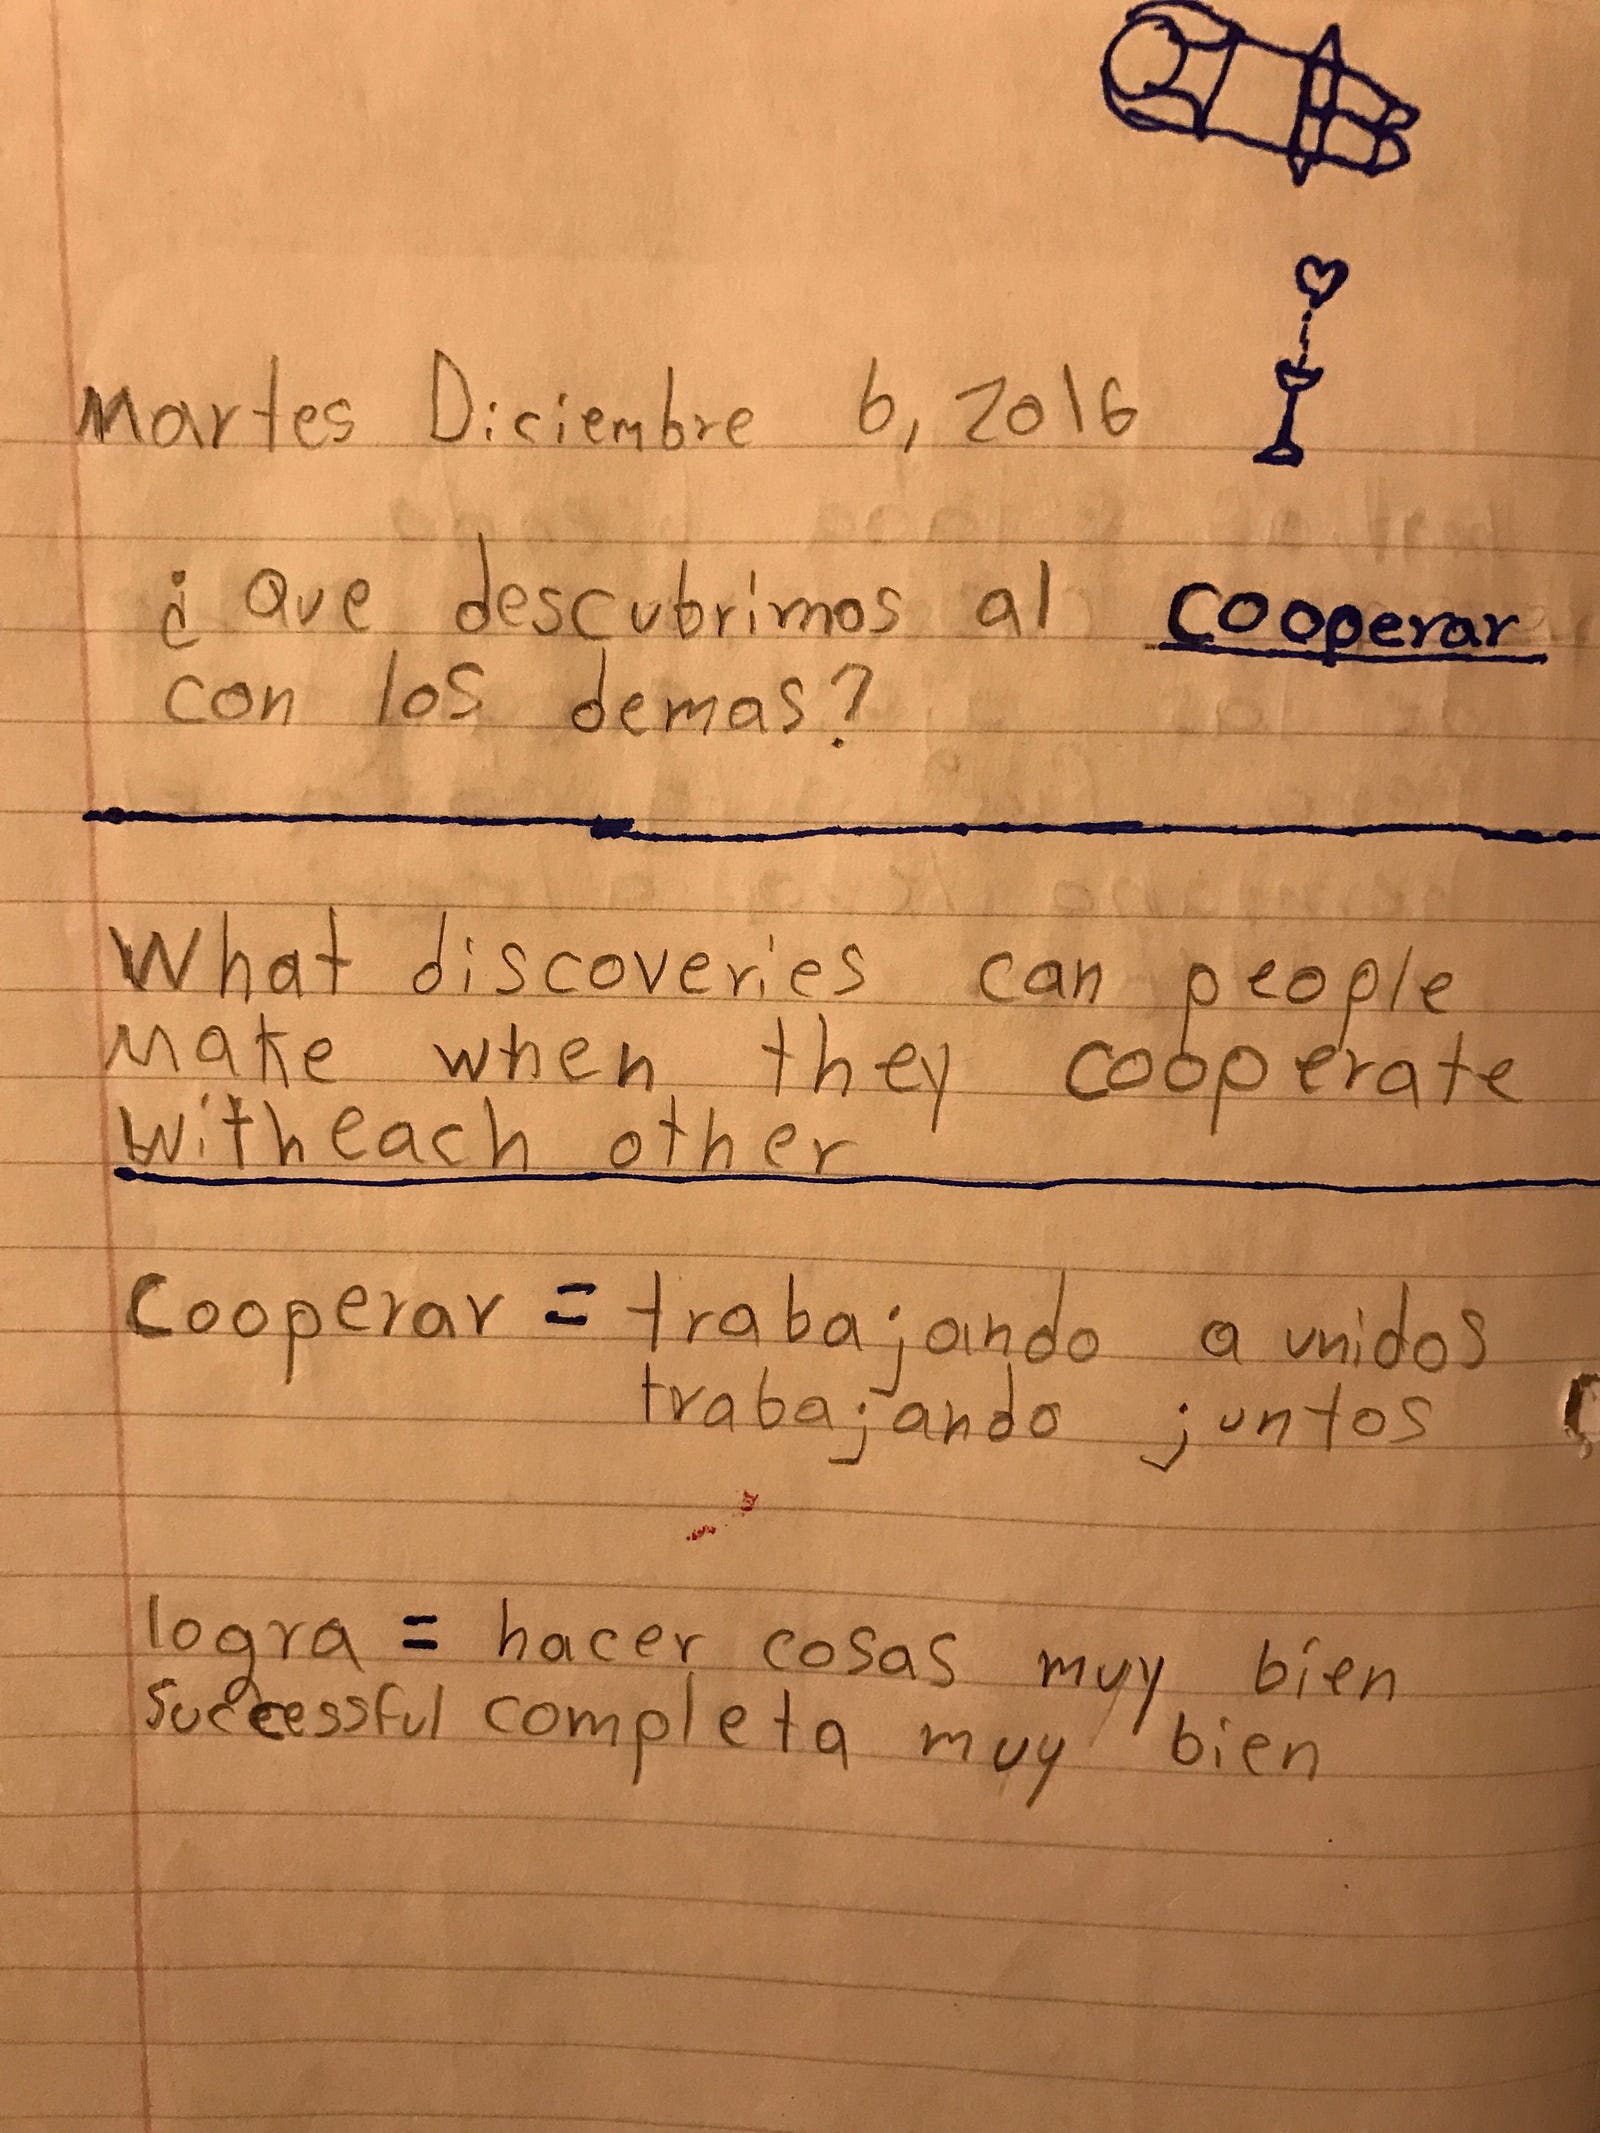 Martes Diciembre 6, 2016
¿ Que descubrimos al cooperar
con los demas?
What discoveries can people
Make when they cooperate
witheach other
Cooperar = trabajando a unidos
trabajando juntos
logra = hacer cosas muy bien
Successful completa muy bien